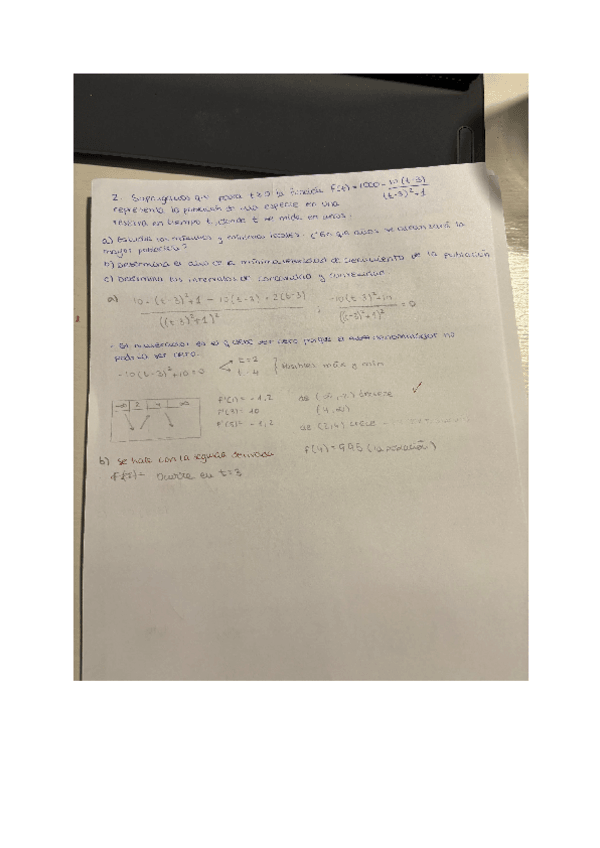 2. Supongamos que para t≥0 la función F(t) = 1000 - 10(t-3) / (t-3)²+1
representa la población de una especie en una
en tiempo t, donde t se mide en años.
a) Estudia los máximos y mínimos locales. ¿En qué años se alcanzará la
mayor población?
b) Determina el año de crecimiento de la población
c) Determina los intervalos de concavidad y convexidad
a) 10·(t-3)²+1 - 10(t-3)·2(t-3) / ((t-3)²+1)² ; -10(t-3)²+10 / ((t-3)²+1)² = 0
- El numerador es el q debe ser cero porque el denominador no
podrá ser cero.
-10(t-3)²+10=0 t=2 t=4 } posibles máx y mín
2 4 F'(1) = -1,2 de (∞, 2) decrece ✓
F'(3) = 10 (4, ∞)
F'(5) = -1,2 de (2,4) crece
b) se hace con la segunda derivada F(4) = 995 (la población)
ocurre en t=3